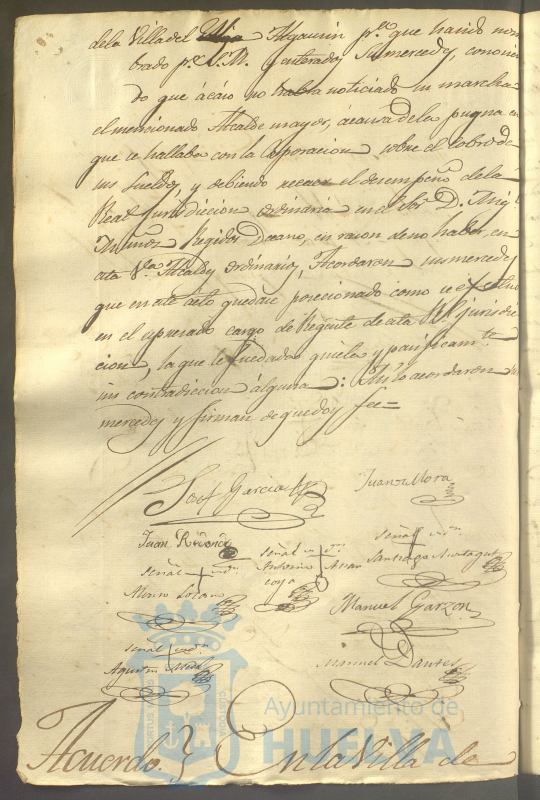 de la Villa del Algavin p.r que haviendo nom
brado p.r S.M. y enterados Sus mercedes, conocien
do que acáso no habra noticiado su marcha
el mencionado Alcalde mayor, ácausa de la pugna en
que se hallaba con la Corporacion sobre el cobro de
sus sueldos, y debiendo recaer el desempeño de la
Real jurisdiccion ordinaria en el Sor. D. Mig.
Muñoz Regidor Decano, en razon de no haber en
esta V.a Alcaldes ordinarios, Acordaron sus mercedes
que en este acto quedase posecionado como se
en el expresado cargo de Regente de esta Rl. jurisdic
cion, la que le fue dada quieta y pacificam.te
sin contradiccion alguna: Asi lo acordaron sus
mercedes y firman de que doy fee=
Josef Garcia
Juan Mora
Juan
señal de
señal de
señal de
Antonio
Santiago
Lozano
Manuel Garzon
señal de
Agustin
Manuel Dantes
Ayuntamiento de
HUELVA
Acuerdo. } En la Villa de